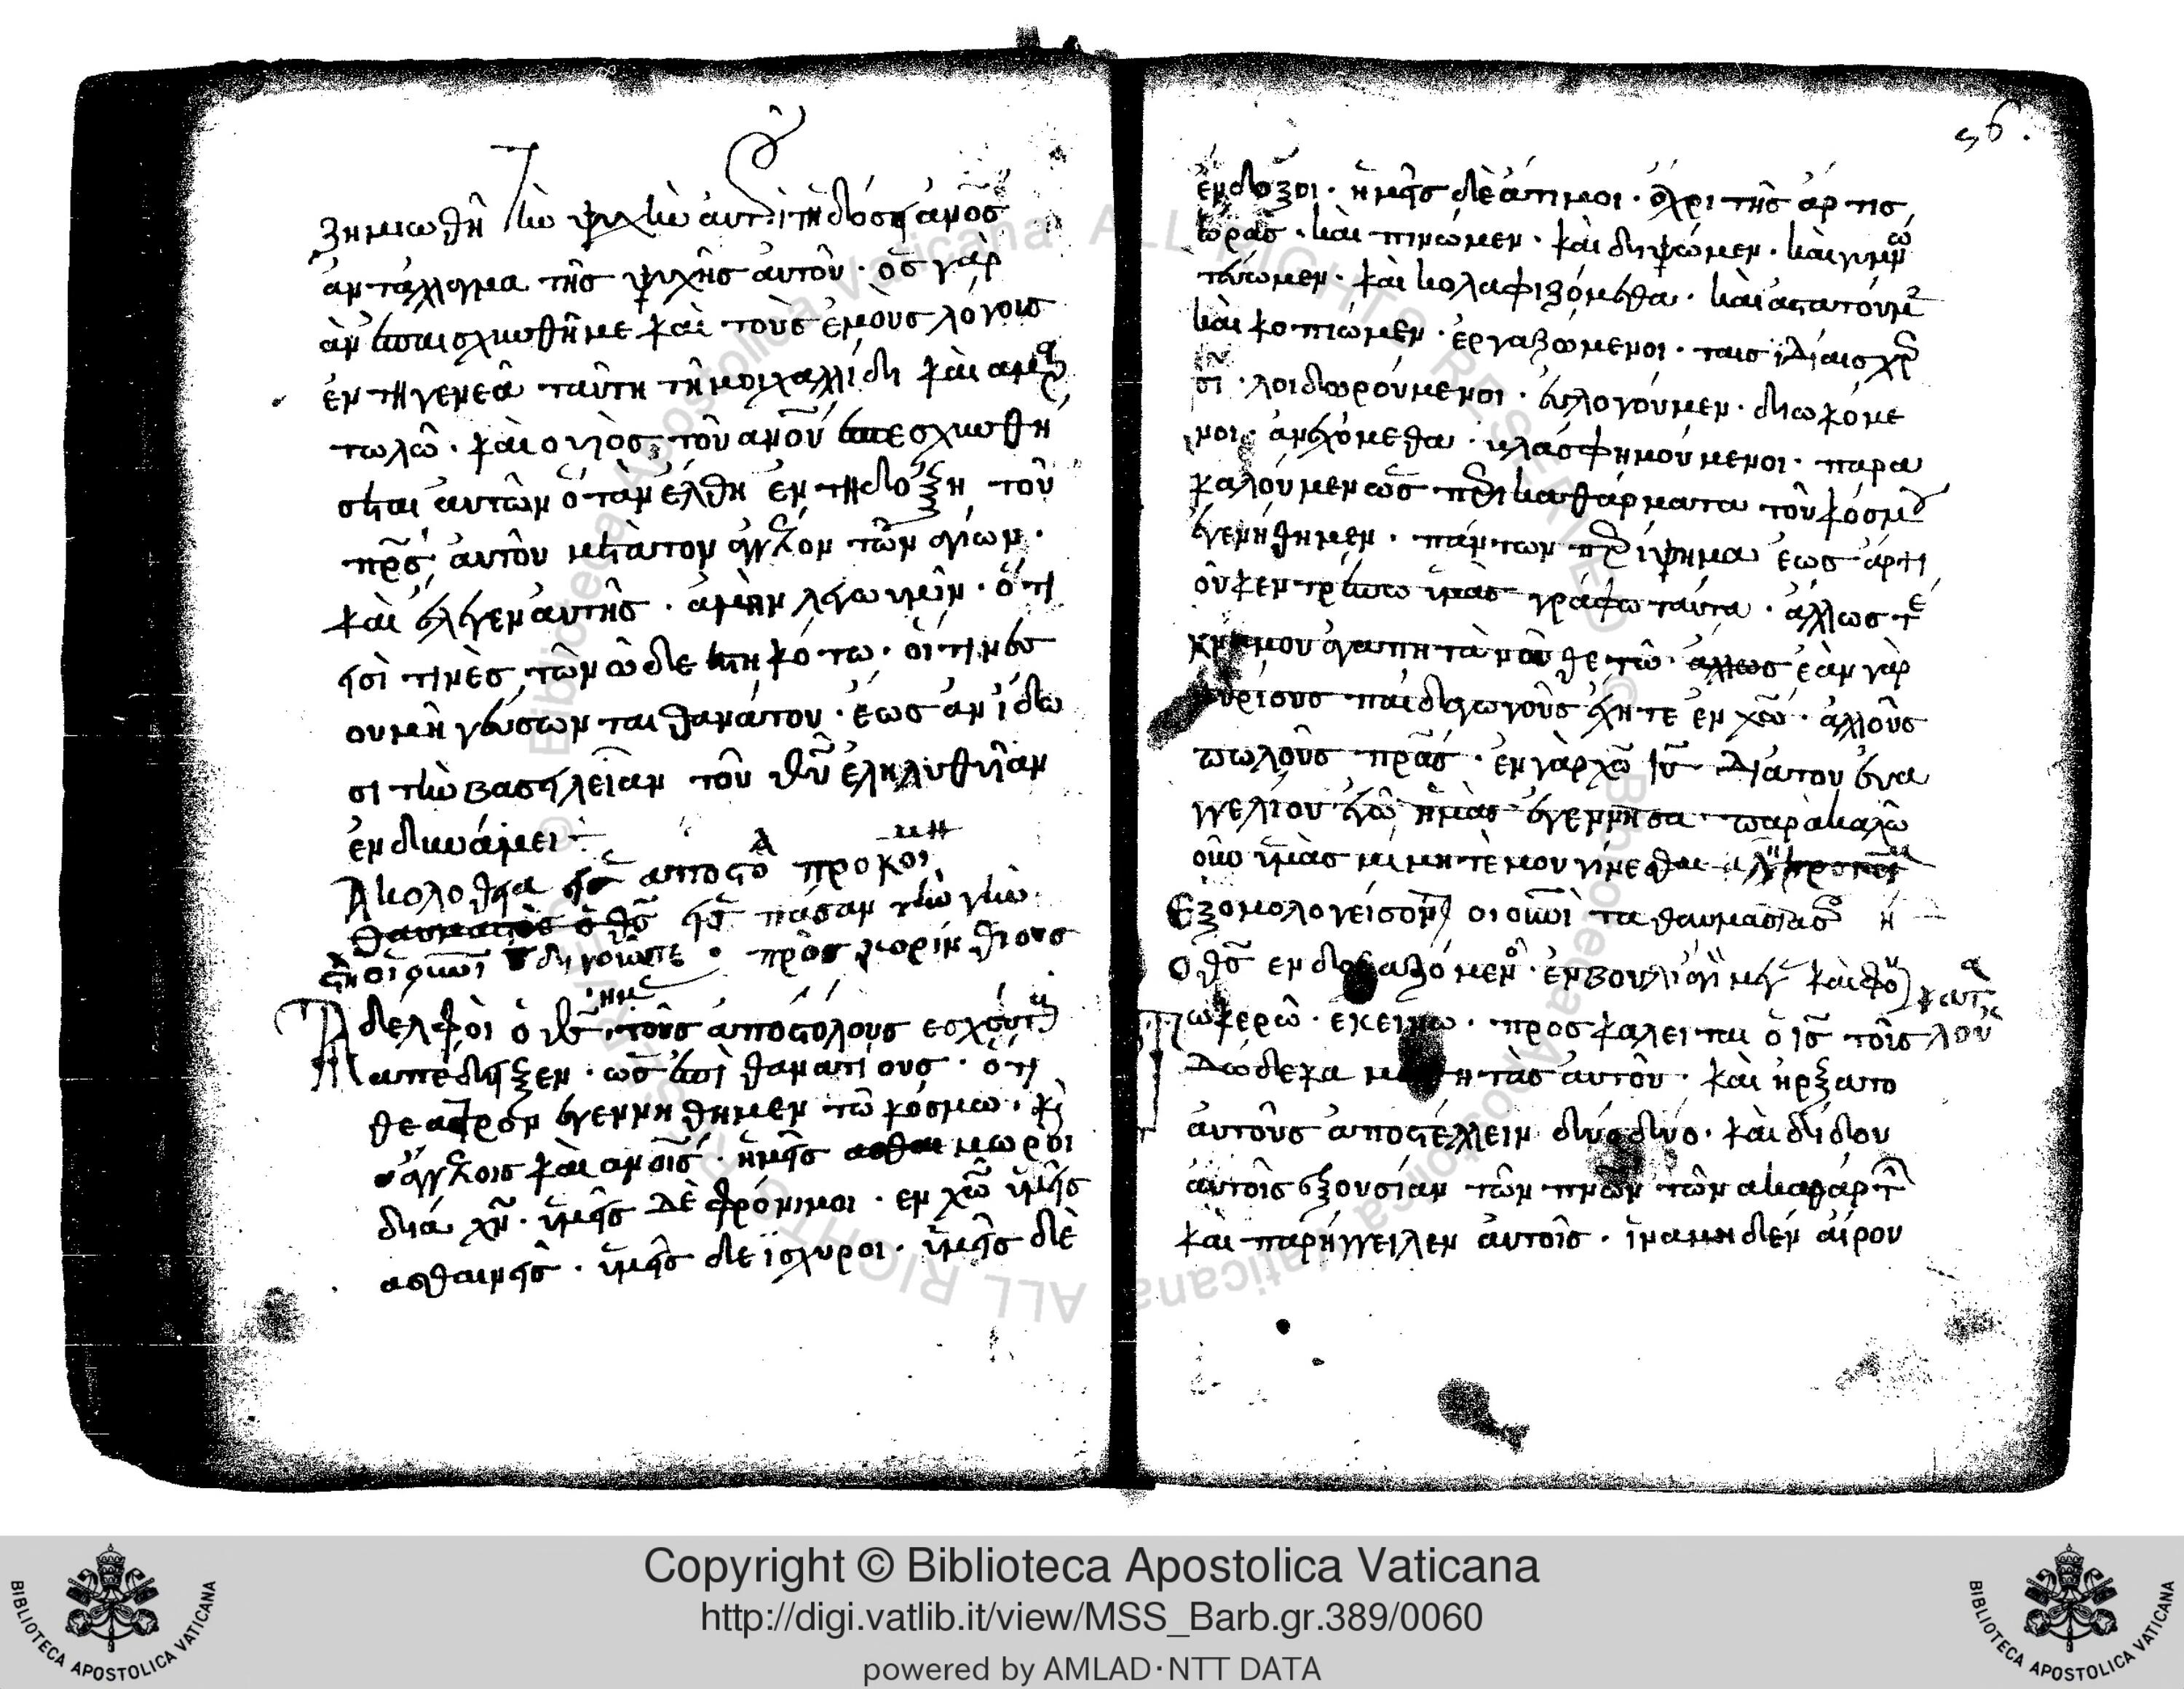 ζημιωθῆ τὴν ψυχὴν αὐτοῦ· ἢ τὴ δόσει ἀνος
ἀντάλλαγμα τῆς ψυχῆς αὐτοῦ· ὃς γὰρ
ἂν ἐπαισχυνθῆ με καὶ τοὺς ἐμοὺς λόγους
ἐν τῆ γενεᾶ ταύτη τῆ μοιχαλλίδη καὶ αμαρ
τωλῶ· καὶ ο υιὸς τοῦ ανου ἐπεσχυνθή
σεται αὐτὸν ὅταν ἔλθη ἐν τῆ δόξη τοῦ
πρς αὐτοῦ μετὰ τον ἀγγέλον τῶν ἁγίων·
καὶ ἔλεγεν αυτῆς· ἀμὴν λέγω ὑμῖν· ὅτι
εἰσὶ τινὲς τῶν ὧδε ἑστηκότω· οἵτινες
ου μὴ γεύσωνται θανάτου· ἕως ἂν ἴδω
σι τὴν βασηλείαν τοῦ θυ ἐληλυθυῖαν
ἐν δυνάμει
Ακολοθηα εις αποστο προκοι
θαυμαστὸς ὁ θς εἰς πάσαν τὴν γὴν
διηγοιωσε πρὸς κορινθίους
Αδελφοὶ ὁ θς ημας τοὺς αποστόλους εσχάτους
απέδηξεν· ὡς ἐπὶ θανατίους· ὅτι
θεατρον ἐγεννήθημεν τῶ κόσμω· καὶ
ἀγγέλοις καὶ ανοις· ἡμεῖς μωροὶ
διὰ χν· ὑμεῖς δὲ φρόνιμοι· εν χω ὑμεῖς
ασθαινεῖς· ὑμεῖς δε ἰσχυροι· ὑμεῖς δὲ
56.
ἔνδοξοι· ἡμεῖς δὲ άτιμοι· ἄχρι τῆς άρτις
ὥρας· καὶ πινώμεν· καὶ διψώμεν· καὶ γυμνω
τεύωμεν· καὶ κολαφιζόμεθα· καὶ ἀσατούμε
καὶ κοπιώμεν· ἐργαζώμενοι· ταις ἰδίαις χερ
σι· λοιδωρούμενοι· ἐυλογούμεν· διωκόμε
νοι· ἀνεχόμεθα· βλασφημούμενοι· παρα
καλούμεν ὡς περικαθάρματα τοῦ κόσμου
ἐγενήθημεν· πάντων περίψημα έως άρτι
οὐκ εντρέπω ὑμὰς γράφω ταύτα· ἀλλως τέ
κνα μου ἀγαπητὰ νουθετῶ· αλλως ἐὰν γὰρ
μυρίους παιδαγωγοὺς ἔχητε ἐν χω· ἀλλ οὺ
πολοὺς πρας· ἐν γὰρ χω ιυ διὰ του ἐυα
γγελίου ἐγὼ ὑμὰς ἐγεννησα· παρακαλῶ
οὖν ὑμὰς μιμητέ μου γίνεσθαι
Εξομολογείσονται οι ουνοὶ τα θαυμασια σου
ο θς ενδοξαζόμενος· ἐν βουλὶ ἁγί
κατὰ λου
Τω κερῶ· εκείνω· προσκαλειται ὁ ις τοῖς
δώδεκα μαθητὰς αὐτοῦ· καὶ ήρξατο
ἀυτοὺς ἀποστέλλειν δύο δύο· καὶ δίδου
ἀυτοῖς ἐξουσίαν τῶν πνων τῶν ακαθάρτ
καὶ παρήγγειλεν ἀυτοῖς· ίνα μηδὲν αίρου
Copyright © Biblioteca Apostolica Vaticana
http://digi.vatlib.it/view/MSS_Barb.gr.389/0060
powered by AMLAD·NTT DATA
BIBLIOTECA APOSTOLICA VATICANA
BIBLIOTECA APOSTOLICA VATICANA